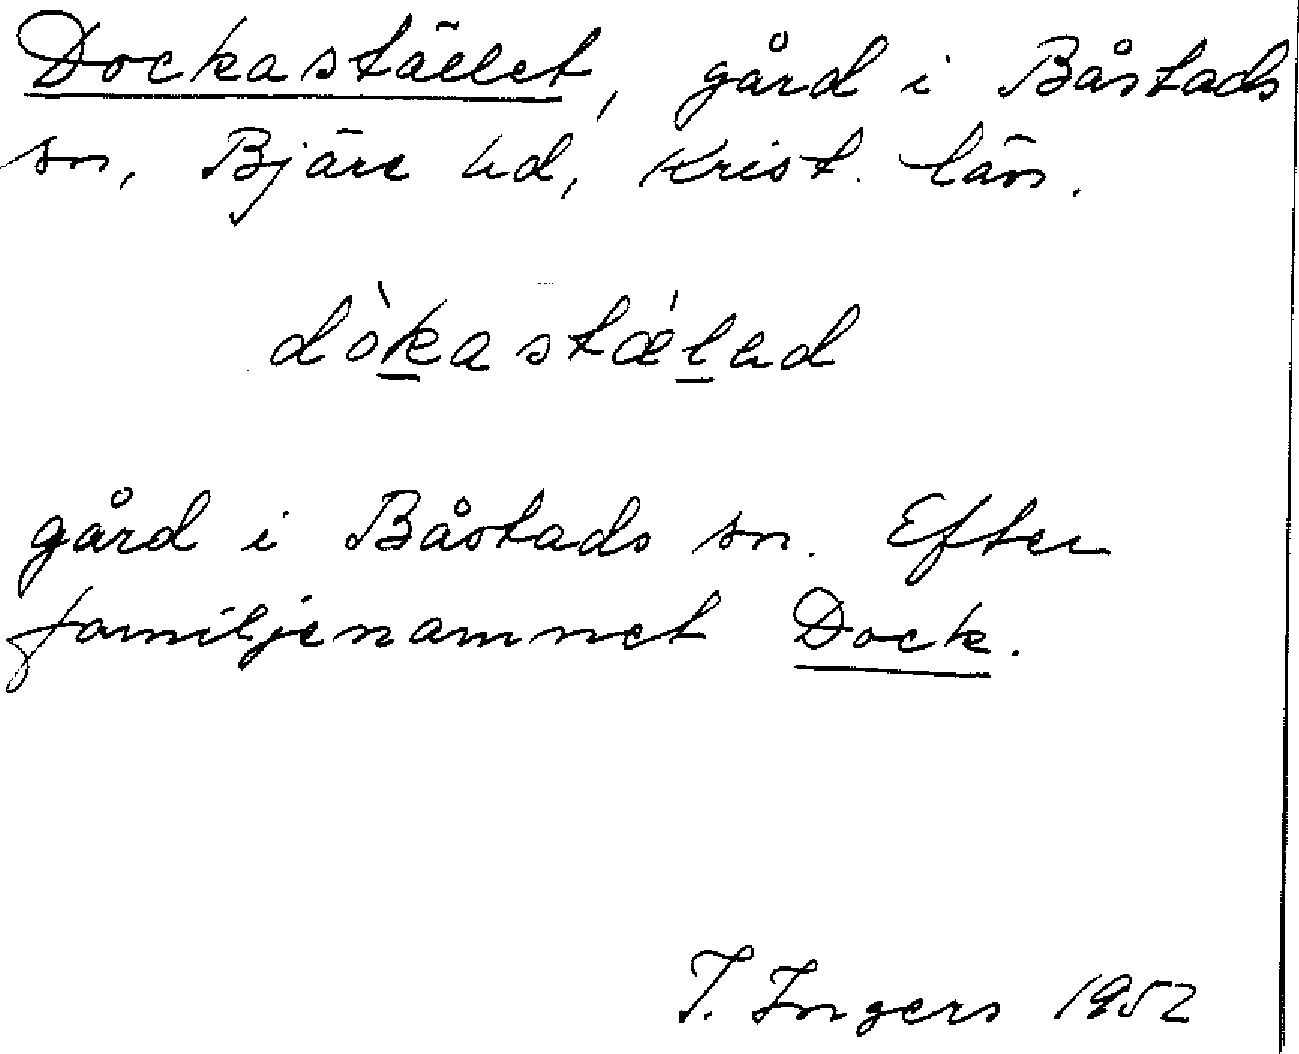 Dockastället, gård i Båstads
sn, Bjäre hd, Krist. län.
dòkastǽlad
gård i Båstads sn. Efter
familjenamnet Dock.
I. Ingers 1952